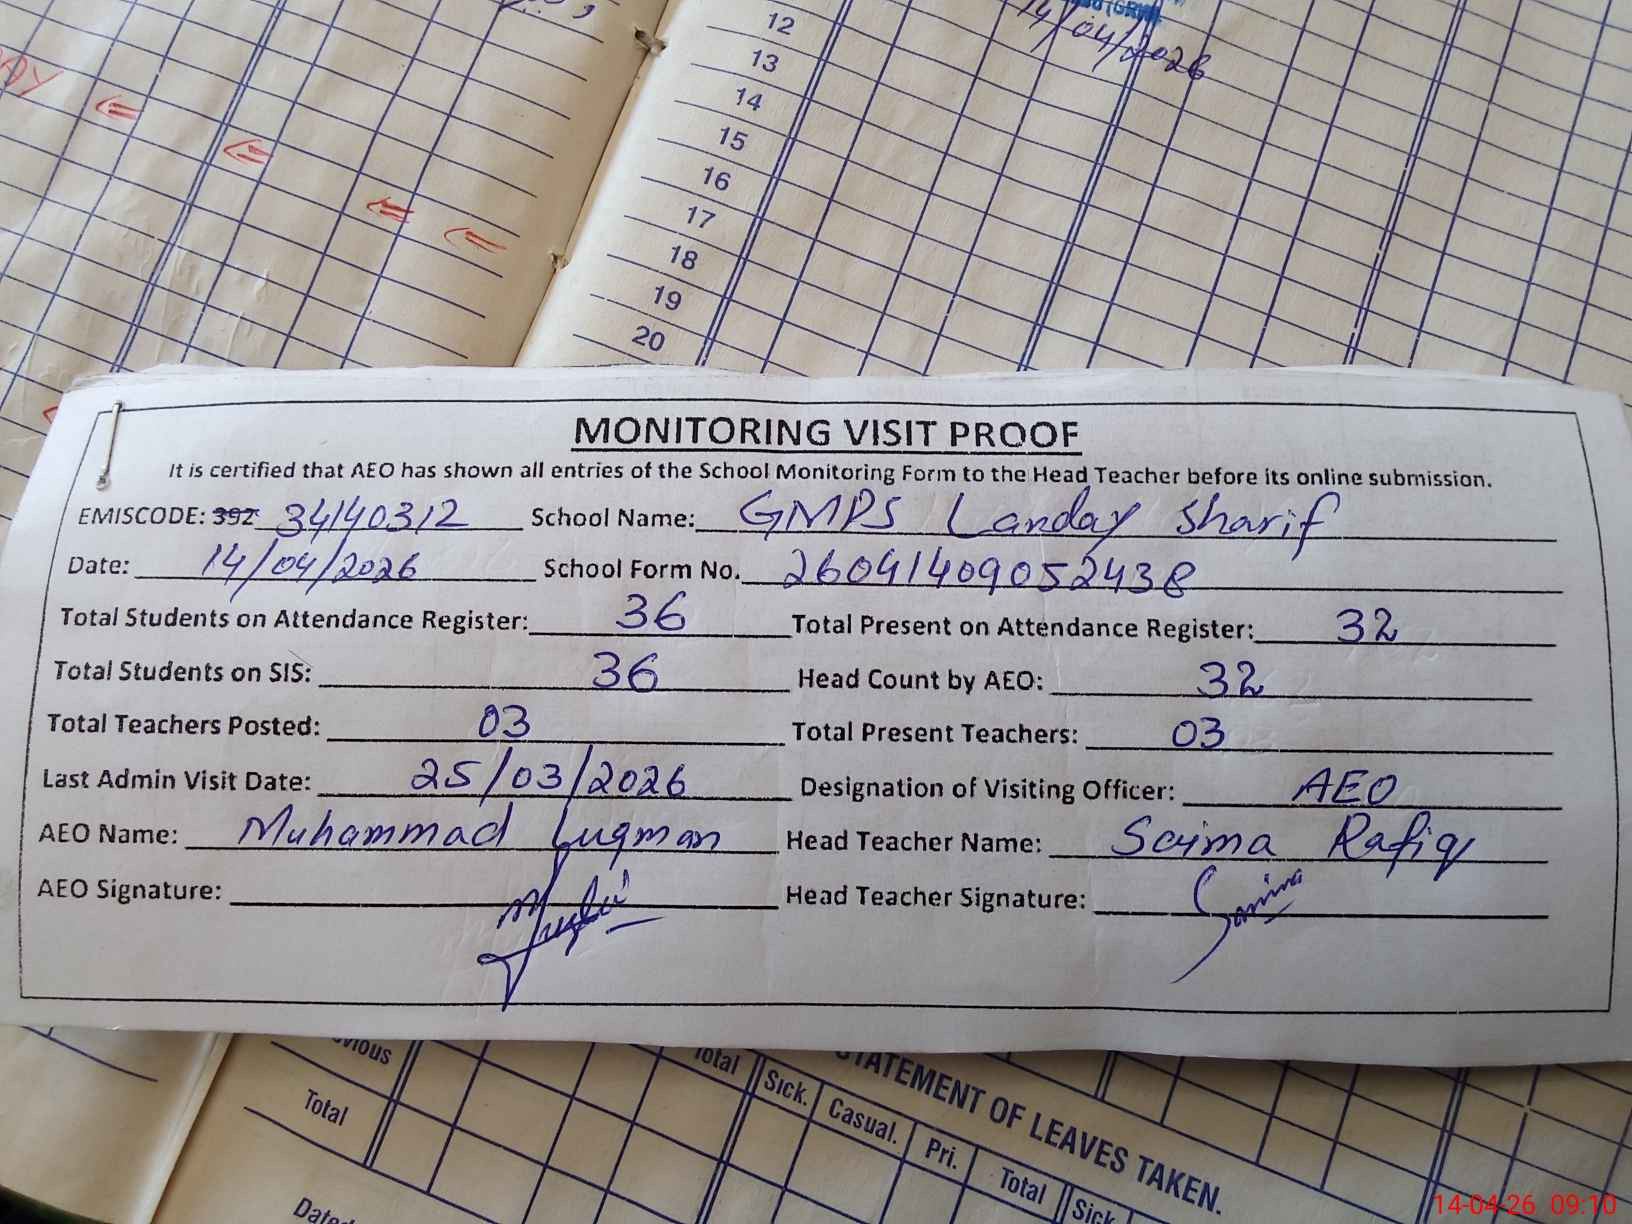 12
14/04/2026
13
14
15
16
17
18
19
20
MONITORING VISIT PROOF
It is certified that AEO has shown all entries of the School Monitoring Form to the Head Teacher before its online submission.
EMISCODE: 392 34140312 School Name: GMPS Landay Sharif
Date: 14/04/2026 School Form No. 26041409052438
Total Students on Attendance Register: 36 Total Present on Attendance Register: 32
Total Students on SIS: 36 Head Count by AEO: 32
Total Teachers Posted: 03 Total Present Teachers: 03
Last Admin Visit Date: 25/03/2026 Designation of Visiting Officer: AEO
AEO Name: Muhammad Luqman Head Teacher Name: Saima Rafiq
AEO Signature: Head Teacher Signature: Saima
STATEMENT OF LEAVES TAKEN.
Total Sick. Casual. Pri. Total Sick
Total
14-04-26 09:10